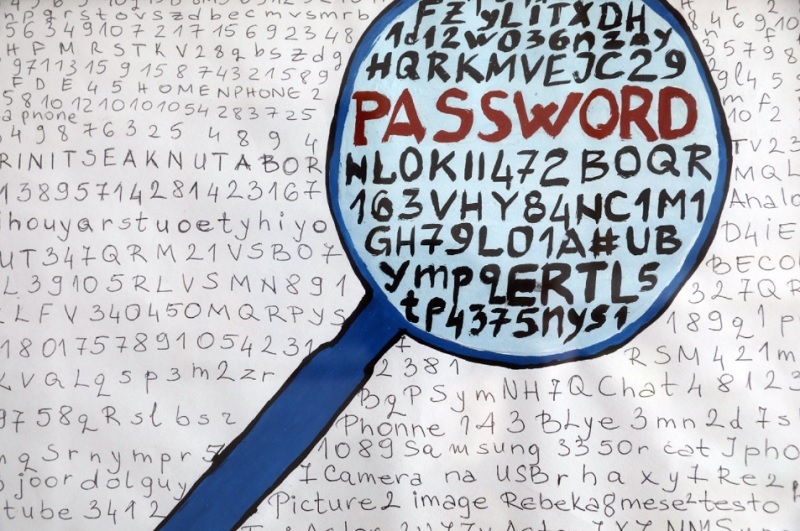 5634910721715692348
HFMRSTKV28qbszdg
9711315915874321589
FDE45HOMENPHONE2
58101210101054283725
a phone
49876325 4894
RINITSEAKNUTABOR
13895714281423167
ihouyarstuoetyhiyo
UT347QRM21VSBO7
L39105RLVSMN891
LFV340450MQRPYS
180175789105 4231
LVQLqsp3m2zr
9758qRslbsz
qSrnympr5
joordolguy
tube 3412
FZ'yLITXDH
1d12wo36nzdy
HQRKMVEJC29
PASSWORD
NLOKII472BOQR
163VHY84NC1M1
GH79LO1A#UB
ympqERTLs
tp4375nys1
TV23
MQL
Analo
D4iE
BECO
327QR
189q1p
RSM421m
2381
BgPSymNH7QChat 4812
Phonne 143 BLye3mn2d7s
1089Samsung 3350r cat Jpho
1Camera na USBrhaxy1Re2
Picture2 image Rebeka8mese2testo